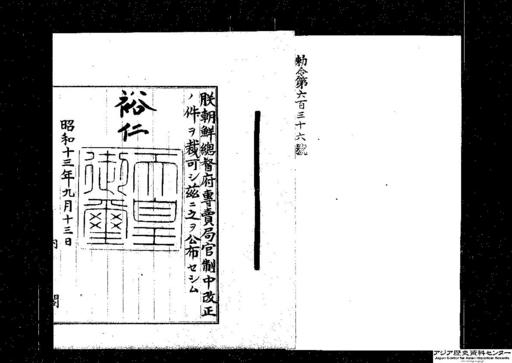 勅令第六百三十六號
朕朝鮮總督府專賣局官制中改正
ノ件ヲ裁可シ玆ニ之ヲ公布セシム
裕仁
天皇御璽
昭和十三年九月十三日
内閣
アジア歴史資料センター
Japan Center for Asian Historical Records